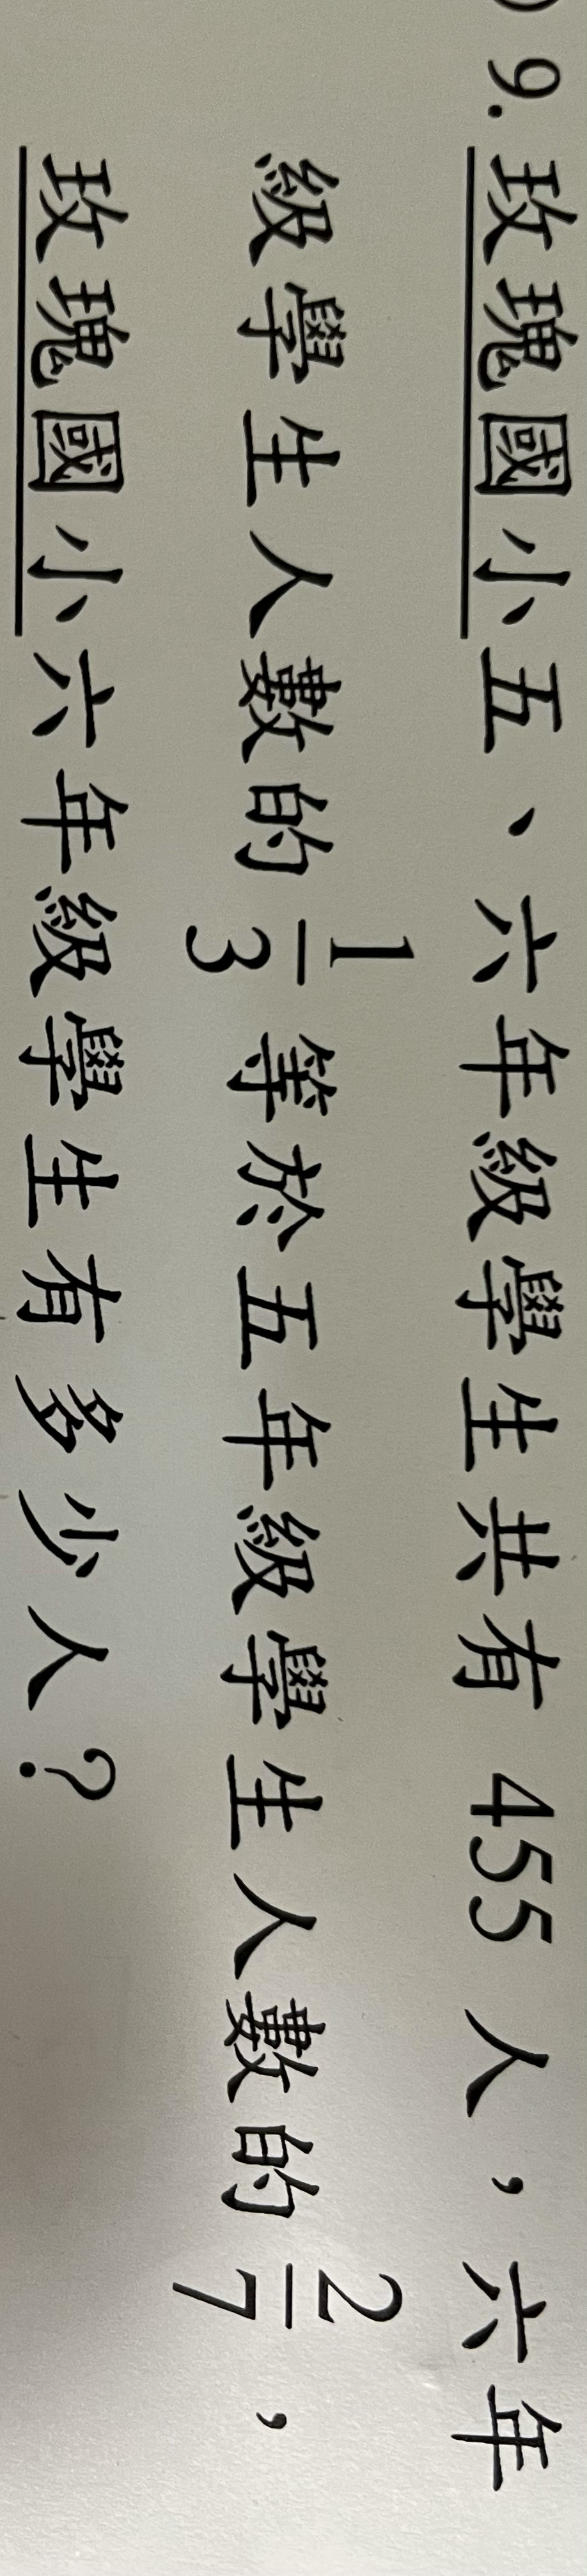 9. 玫瑰國小五、六年級學生共有 455 人，六年
級學生人數的 1/3 等於五年級學生人數的 2/7，
玫瑰國小六年級學生有多少人？